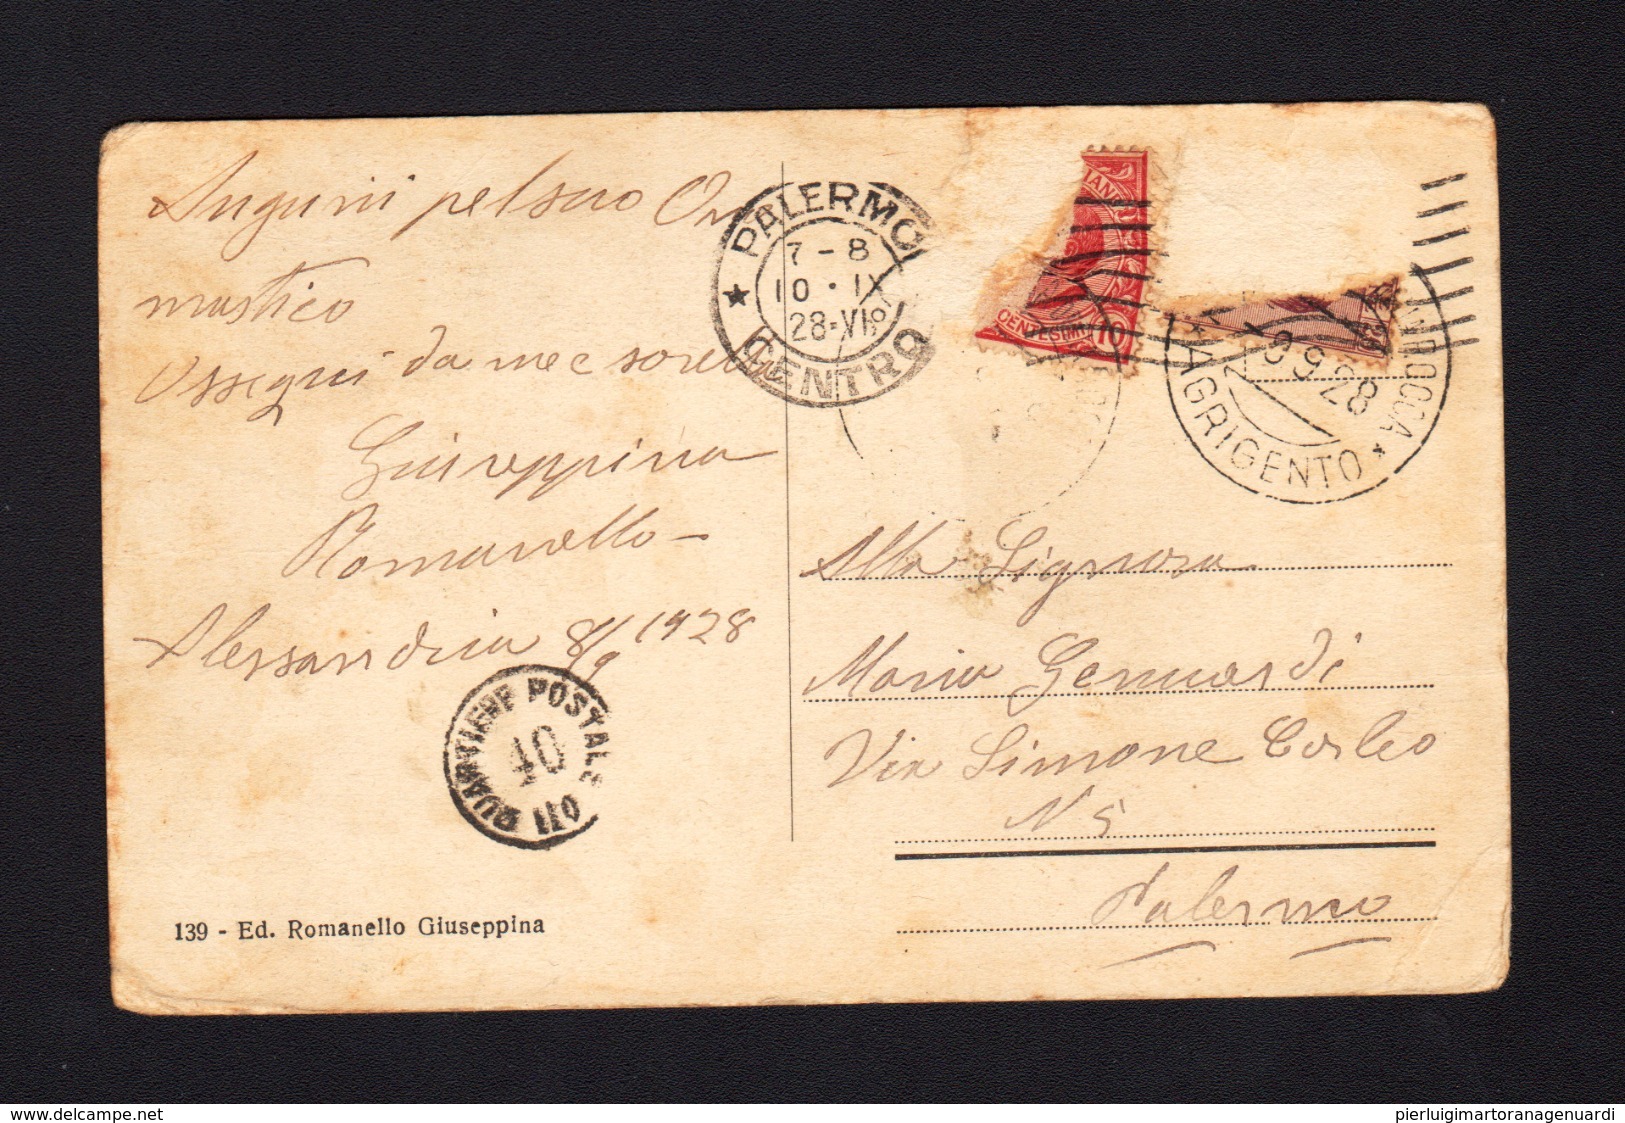 Auguri pel suo Ono
mastico
Ossequi da me e sorella
Giuseppina
Romanello
Alessandria 8/9 1928
QUARTIERE POSTALE
40
139 - Ed. Romanello Giuseppina
PALERMO
7 - 8
10 · IX
28 · VI
CENTRO
CENTESIMI 10
AGRIGENTO
8 9 28
Alla Signora
Maria Genuardi
Via Simone Corleo
N 5
Palermo
delcampe.net
pierluigimartoranagenuardi